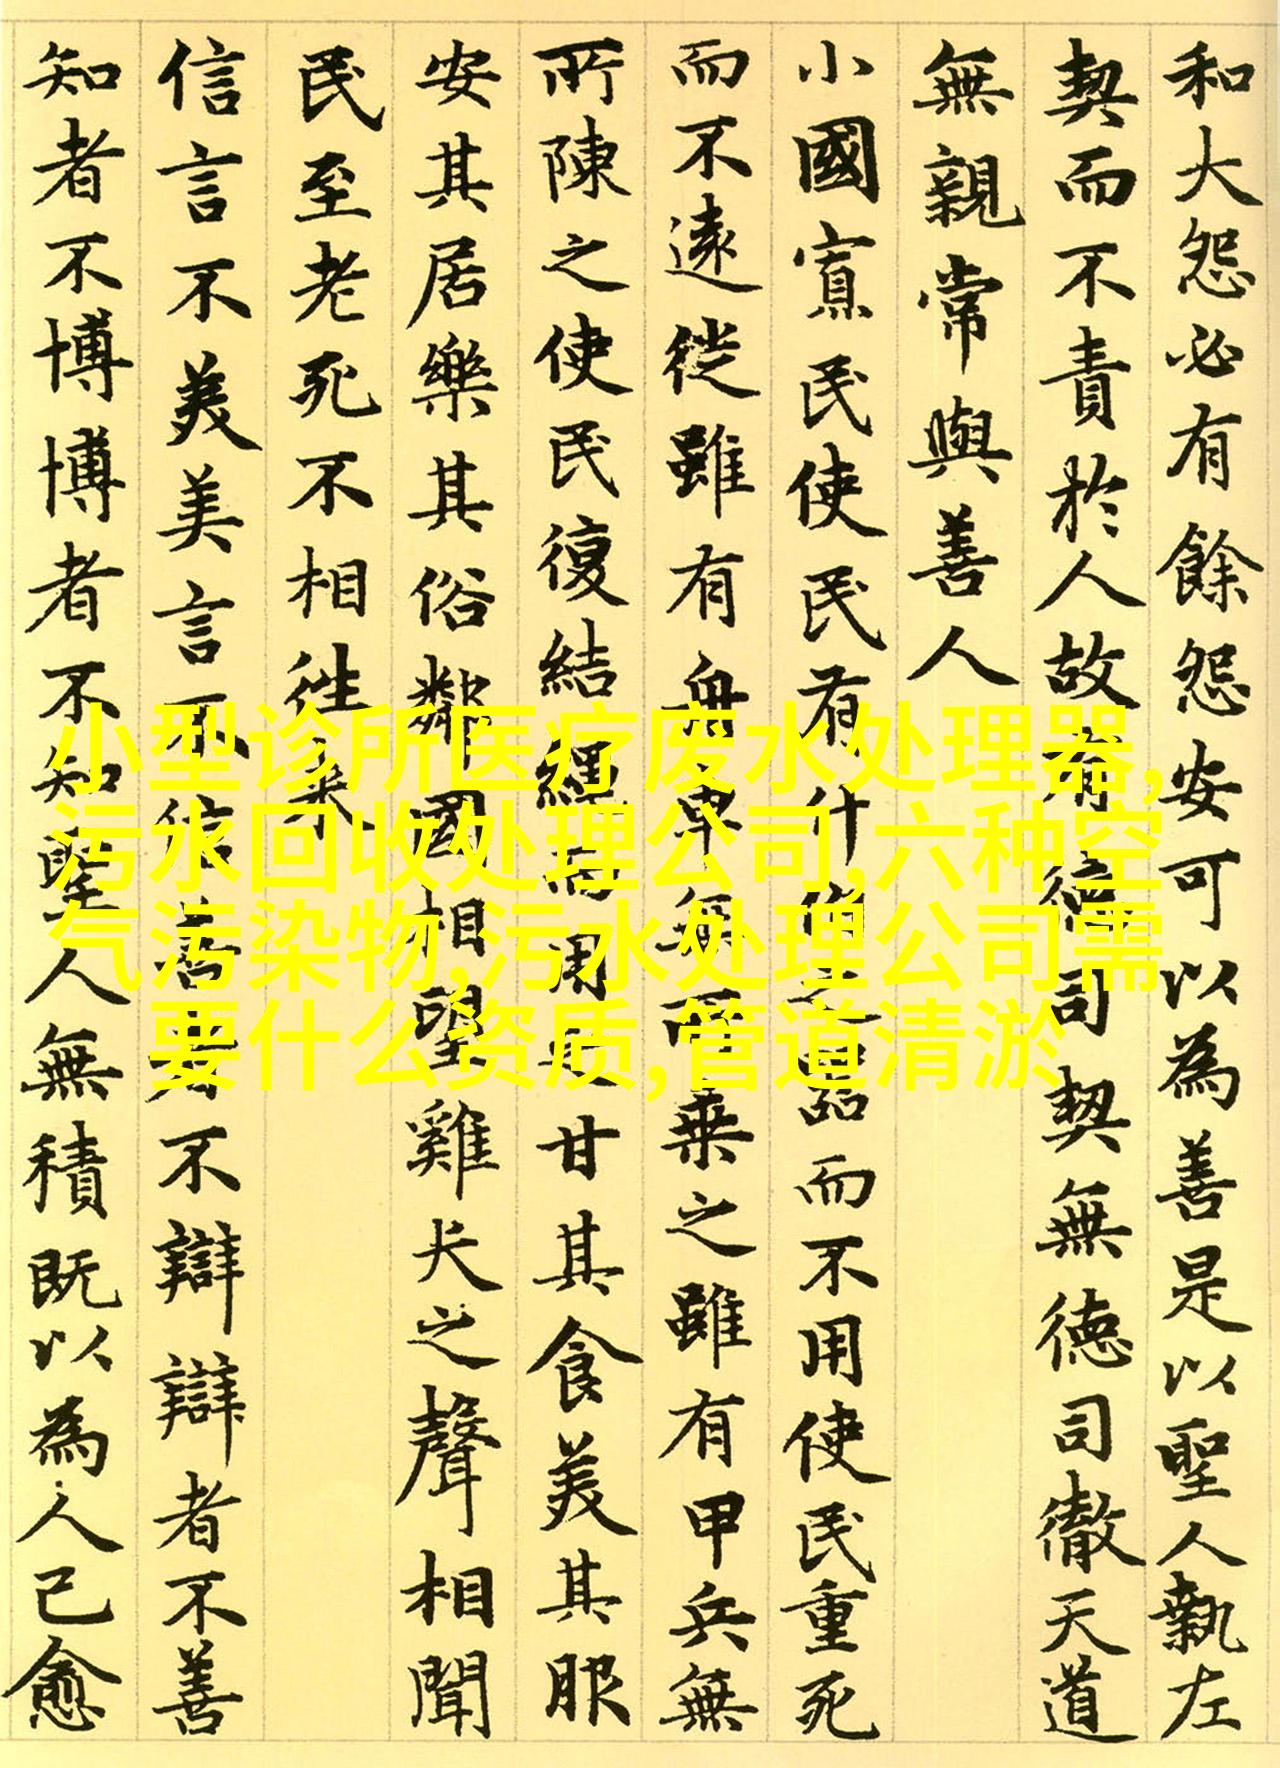 和大怨必有餘怨安可以為善是以聖人執左
契而不責於人故有德司契無德司徹天道
無親常與善人
小國寡民使民有什伯之器而不用使民重死
而不遠徙雖有舟車無所乘之雖有甲兵無
所陳之使民復結繩而用之甘其食美其服
安其居樂其俗鄰國相望雞犬之聲相聞
民至老死不相往來
信言不美美言不信善者不辯辯者不善
知者不博博者不知聖人無積既以為人己愈
小型诊所医疗废水处理器,
污水回收处理公司,六种空
气污染物,污水处理公司需
要什么资质,管道清淤